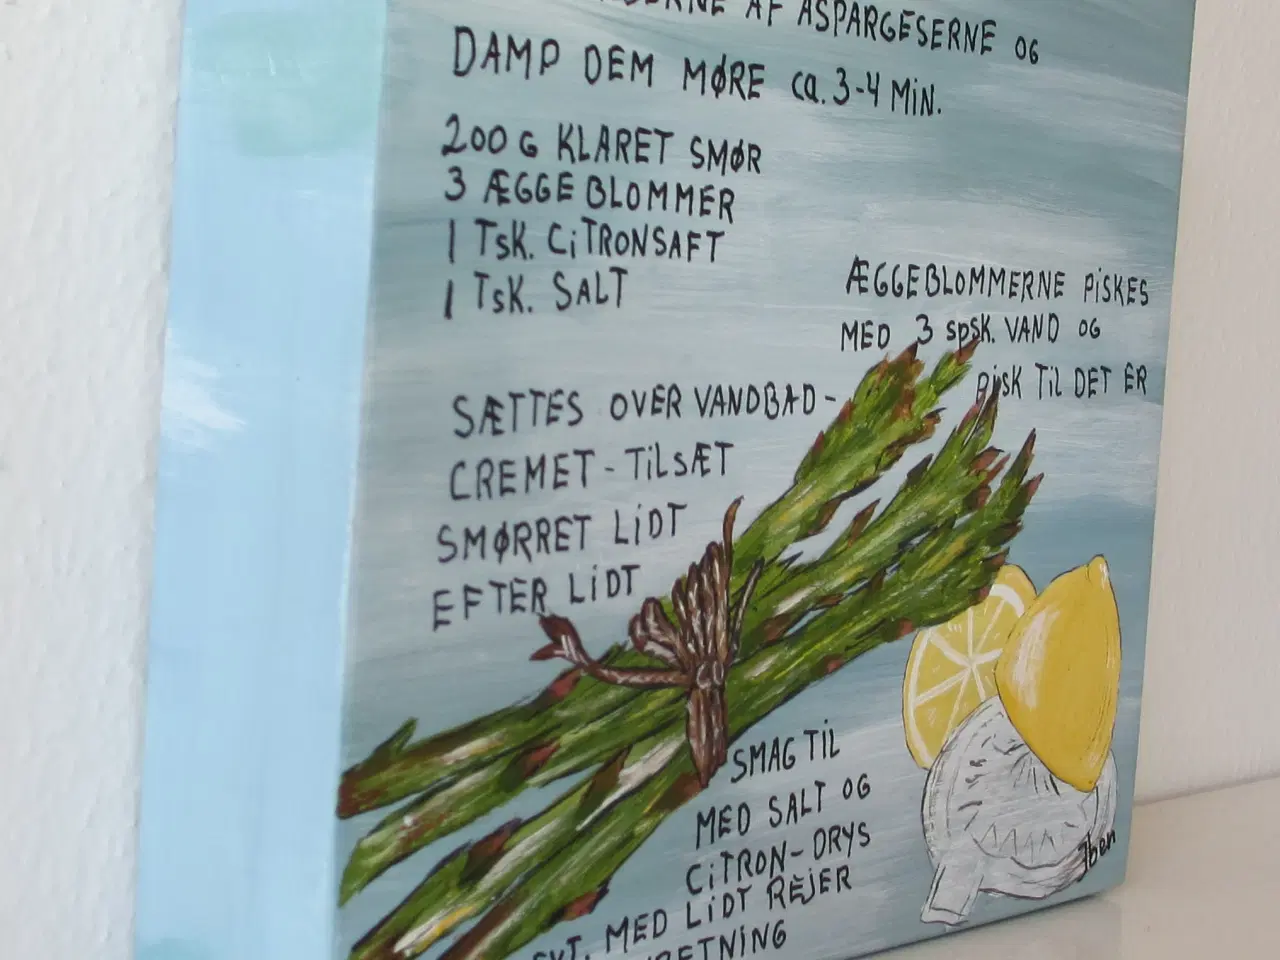 AF ASPARGESERNE OG
DAMP DEM MØRE ca. 3-4 MiN.
200 G KLARET SMØR
3 ÆGGEBLOMMER
1 TSK. CiTRONSAFT
1 TSK. SALT
ÆGGEBLOMMERNE PiSKES
MED 3 SPSK. VAND OG
PiSK TiL DET ER
SÆTTES OVER VANDBAD-
CREMET - TiLSÆT
SMØRRET LiDT
EFTER LiDT
SMAG TiL
MED SALT OG
CiTRON-DRYS
EVT. MED LiDT REJER
Iben